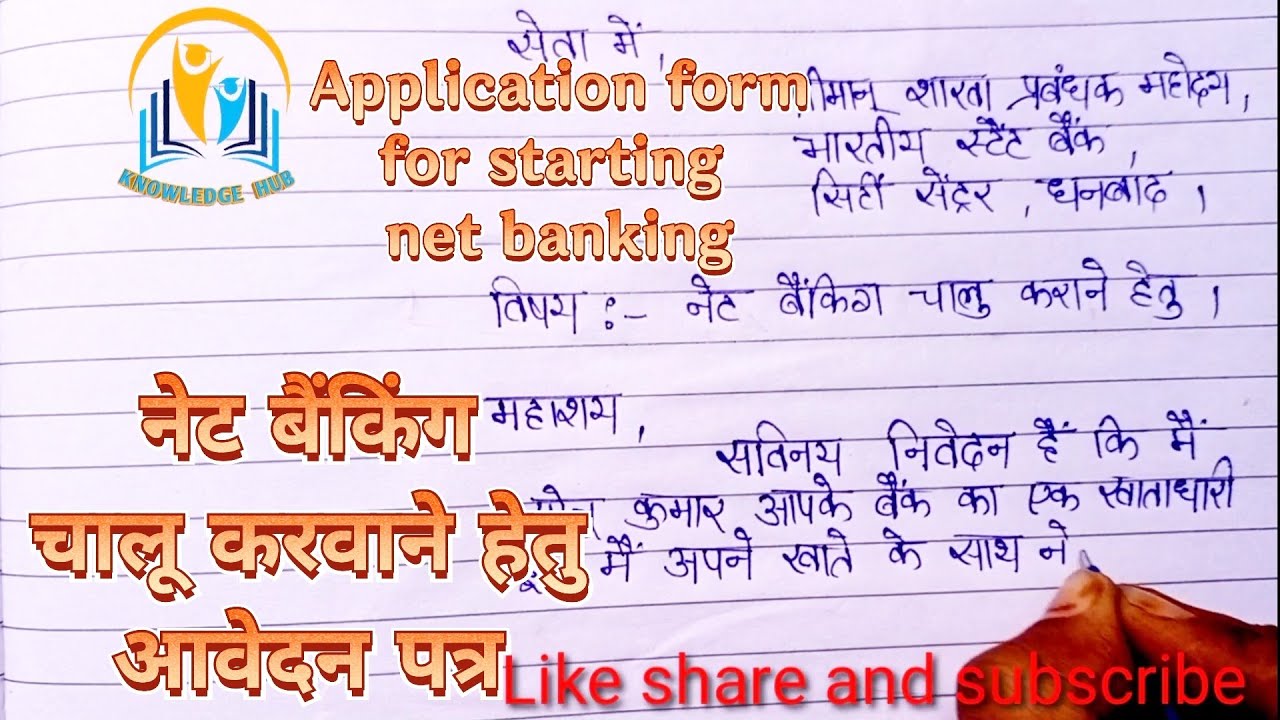 सेवा में,
श्रीमान् शाखा प्रबंधक महोदय,
भारतीय स्टैट बैंक,
सिटी सेंट्रर, धनबाद ।
KNOWLEDGE HUB
Application form
for starting
net banking
विषय :- नेट बैंकिग चालु कराने हेतु ।
महाशय,
नेट बैंकिंग
चालू करवाने हेतु
आवेदन पत्र
सविनय निवेदन हैं कि मैं
कुमार आपके बैंक का एक खाताधारी
मैं अपने खाते के साथ ने
Like share and subscribe